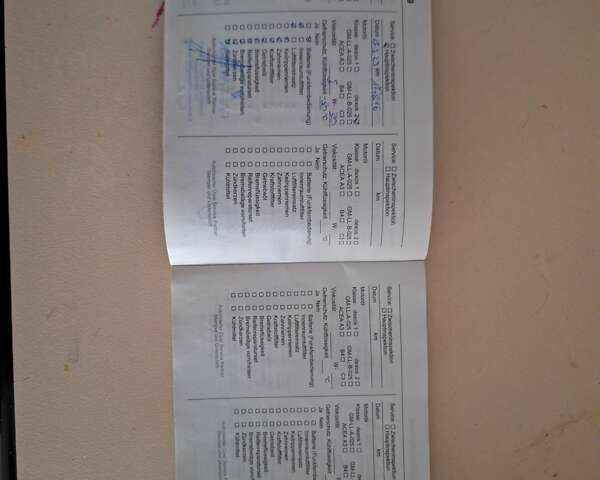 Service ☐ Zwischeninspektion
Hauptinspektion
Datum km
Motoröl
Klasse dexos 1 ☐ dexos 2
GM-LL-A-025 ☐ GM-LL-B-025 ☐
ACEA A3 ☐ B4 ☐ C3 ☐
Viskosität 5 W- 30
Gefrierschutz, Kühlflüssigkeit °C
Ja Nein
Batterie (Funkfernbedienung)
Innenraumluftfilter
Luftfiltereinsatz
Keilrippenriemen
Zahnriemen
Kraftstofffilter
Getriebeöl
Bremsflüssigkeit
Reifenreparaturset
Bremsbeläge vorn/hinten
Zündkerzen
Kühlmittel
Service ☐ Zwischeninspektion
☐ Hauptinspektion
Datum km
Motoröl
Klasse dexos 1 ☐ dexos 2 ☐
GM-LL-A-025 ☐ GM-LL-B-025 ☐
ACEA A3 ☐ B4 ☐ C3 ☐
Viskosität W-
Gefrierschutz, Kühlflüssigkeit °C
Ja Nein
☐ ☐ Batterie (Funkfernbedienung)
☐ ☐ Innenraumluftfilter
☐ ☐ Luftfiltereinsatz
☐ ☐ Keilrippenriemen
☐ ☐ Zahnriemen
☐ ☐ Kraftstofffilter
☐ ☐ Getriebeöl
☐ ☐ Bremsflüssigkeit
☐ ☐ Reifenreparaturset
☐ ☐ Bremsbeläge vorn/hinten
☐ ☐ Zündkerzen
☐ ☐ Kühlmittel
Autorisierter Opel Service Partner
Stempel und Unterschrift
Service ☐ Zwischeninspektion
☐ Hauptinspektion
Datum km
Motoröl
Klasse dexos 1 ☐ dexos 2 ☐
GM-LL-A-025 ☐ GM-LL-B-025 ☐
ACEA A3 ☐ B4 ☐ C3 ☐
Viskosität W-
Gefrierschutz, Kühlflüssigkeit °C
Ja Nein
☐ ☐ Batterie (Funkfernbedienung)
☐ ☐ Innenraumluftfilter
☐ ☐ Luftfiltereinsatz
☐ ☐ Keilrippenriemen
☐ ☐ Zahnriemen
☐ ☐ Kraftstofffilter
☐ ☐ Getriebeöl
☐ ☐ Bremsflüssigkeit
☐ ☐ Reifenreparaturset
☐ ☐ Bremsbeläge vorn/hinten
☐ ☐ Zündkerzen
☐ ☐ Kühlmittel
Autorisierter Opel Service Partner
Stempel und Unterschrift
Service ☐ Zwischeninspektion
☐ Hauptinspektion
Datum km
Motoröl
Klasse dexos 1 ☐
GM-LL-A-025 ☐
ACEA A3 ☐ B4 ☐
Viskosität
Gefrierschutz, Kühlflüssigkeit
Ja Nein
☐ ☐ Batterie
☐ ☐ Innenraumluftfilter
☐ ☐ Luftfiltereinsatz
☐ ☐ Keilrippenriemen
☐ ☐ Zahnriemen
☐ ☐ Kraftstofffilter
☐ ☐ Getriebeöl
☐ ☐ Bremsflüssigkeit
☐ ☐ Reifenreparaturset
☐ ☐ Bremsbeläge
☐ ☐ Zündkerzen
☐ ☐ Kühlmittel